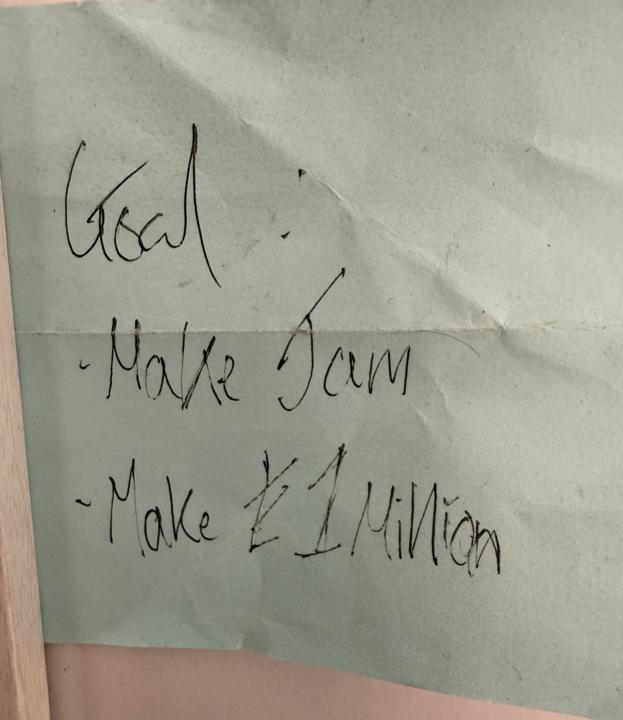 Goal :
- Make Jam
- Make £1 Million